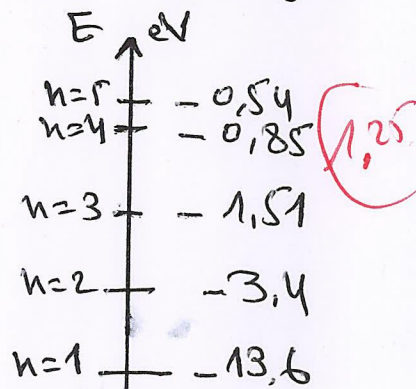 E eV
n=5 - 0,54
n=4 - 0,85
1,25
n=3 - 1,51
n=2 - 3,4
n=1 - 13,6